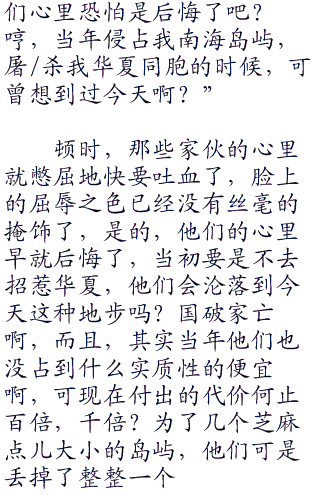 们心里恐怕是后悔了吧？
哼，当年侵占我南海岛屿，
屠/杀我华夏同胞的时候，可
曾想到过今天啊？”
顿时，那些家伙的心里
就憋屈地快要吐血了，脸上
的屈辱之色已经没有丝毫的
掩饰了，是的，他们的心里
早就后悔了，当初要是不去
招惹华夏，他们会沦落到今
天这种地步吗？国破家亡
啊，而且，其实当年他们也
没占到什么实质性的便宜
啊，可现在付出的代价何止
百倍，千倍？为了几个芝麻
点儿大小的岛屿，他们可是
丢掉了整整一个